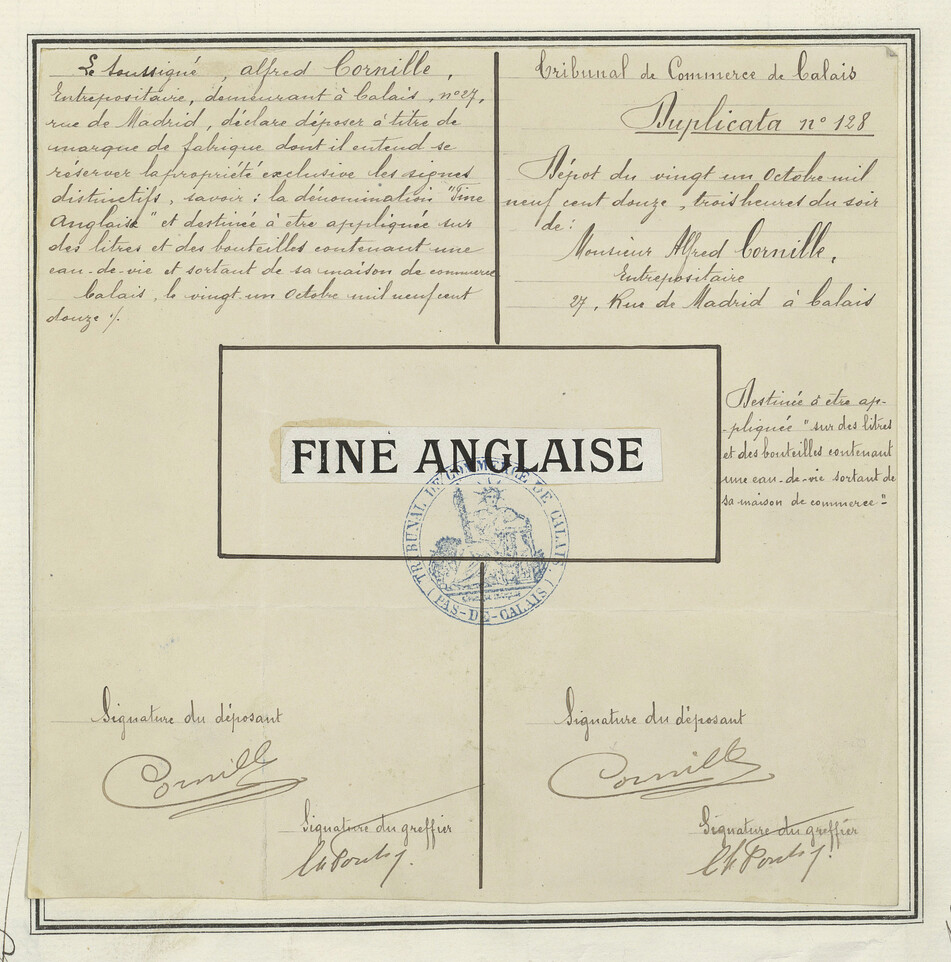 Le soussigné, Alfred Cornille,
Entrepositaire, demeurant à Calais, n° 27,
rue de Madrid, déclare déposer à titre de
marque de fabrique dont il entend se
réserver la propriété exclusive les signes
distinctifs, savoir : la dénomination "Fine
Anglaise" et destinée à être appliquée sur
des litres et des bouteilles contenant une
eau-de-vie et sortant de sa maison de commerce
Calais, le vingt un Octobre mil neuf cent
douze ./.
Tribunal de Commerce de Calais
Duplicata n° 128
Dépot du vingt un Octobre mil
neuf cent douze, trois heures du soir
de :
Monsieur Alfred Cornille,
Entrepositaire
27, Rue de Madrid à Calais
FINE ANGLAISE
Destinée à etre ap-
-pliquée "sur des litres
et des bouteilles contenant
une eau-de-vie sortant de
sa maison de commerce"-
TRIBUNAL DE COMMERCE DE CALAIS
(PAS-DE-CALAIS)
Signature du déposant
Cornille
Signature du greffier
Signature du déposant
Cornille
Signature du greffier